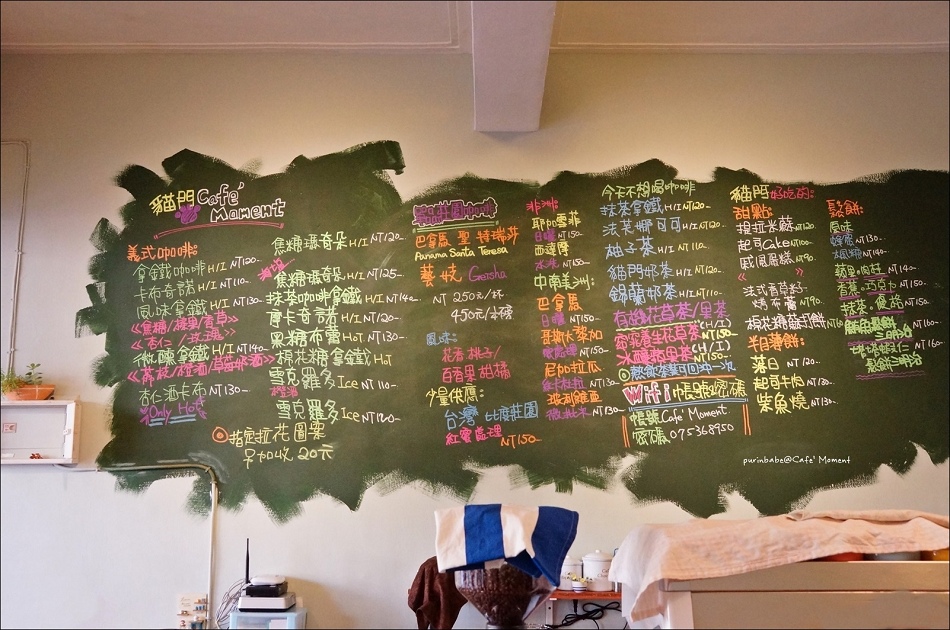 貓門 Café Moment
義式咖啡:
拿鐵咖啡 H/I NT120-
卡布奇諾 H/I NT110-
風味拿鐵 H/I NT130-
《焦糖/榛果/香草》
《杏仁/玫瑰》
微醺拿鐵 H/I NT140-
杏仁酒卡布 NT130-
Only Hot
焦糖瑪奇朵 H/I NT120-
焦糖瑪奇朵 H/I NT125-
抹茶咖啡拿鐵 H/I NT140-
摩卡奇諾 H/I NT130-
果糖布蕾 Hot NT130-
棉花糖拿鐵 Hot
雪克羅多 Ice NT110-
雪克羅多 Ice NT120-
◎指定拉花圖案
只加收20元
莊園咖啡
巴拿馬 聖特瑞莎
Panama Santa Teresa
藝妓 Geisha
NT 250元/杯
450元/
風味:
花香 桃子/
百香果 柑橘
少量供應:
台灣
莊園
紅蜜處理
NT150-
非洲:
耶加雪菲
日曬 NT150-
西達摩
水洗 NT150-
中南美洲:
巴拿馬
日曬 NT150-
哥斯大黎加
NT150-
尼加拉瓜
NT130-
NT130-
今天不想喝咖啡
抹茶拿鐵 H/I NT120-
法芙娜可可 H/I NT120-
柚子茶 H/I NT110-
貓門奶茶 H/I NT120-
錦蘭奶茶 H/I NT110-
有機花草茶/果茶
(H/I)
養生花草茶 NT150-
水果茶 (H/I)
◎熱飲茶葉可回沖一次
Wifi 帳號&密碼
帳號 Cafe' Moment
密碼 075368950
貓門 好吃的:
甜點:
提拉米蘇 NT100-
起司Cake NT100-
戚風蛋糕 NT90-
法式香草籽
烤布蕾 NT90-
棉花糖蘇打餅 NT160-
日蒲餅:
落日 NT120-
起司牛肉 NT130-
柴魚燒 NT130-
鬆餅:
原味
蜂蜜 NT130-
楓糖 NT140-
NT140-
香蕉巧克力 NT150-
抹茶 NT150-
NT160-
NT160-
purinbabe@Cafe' Moment